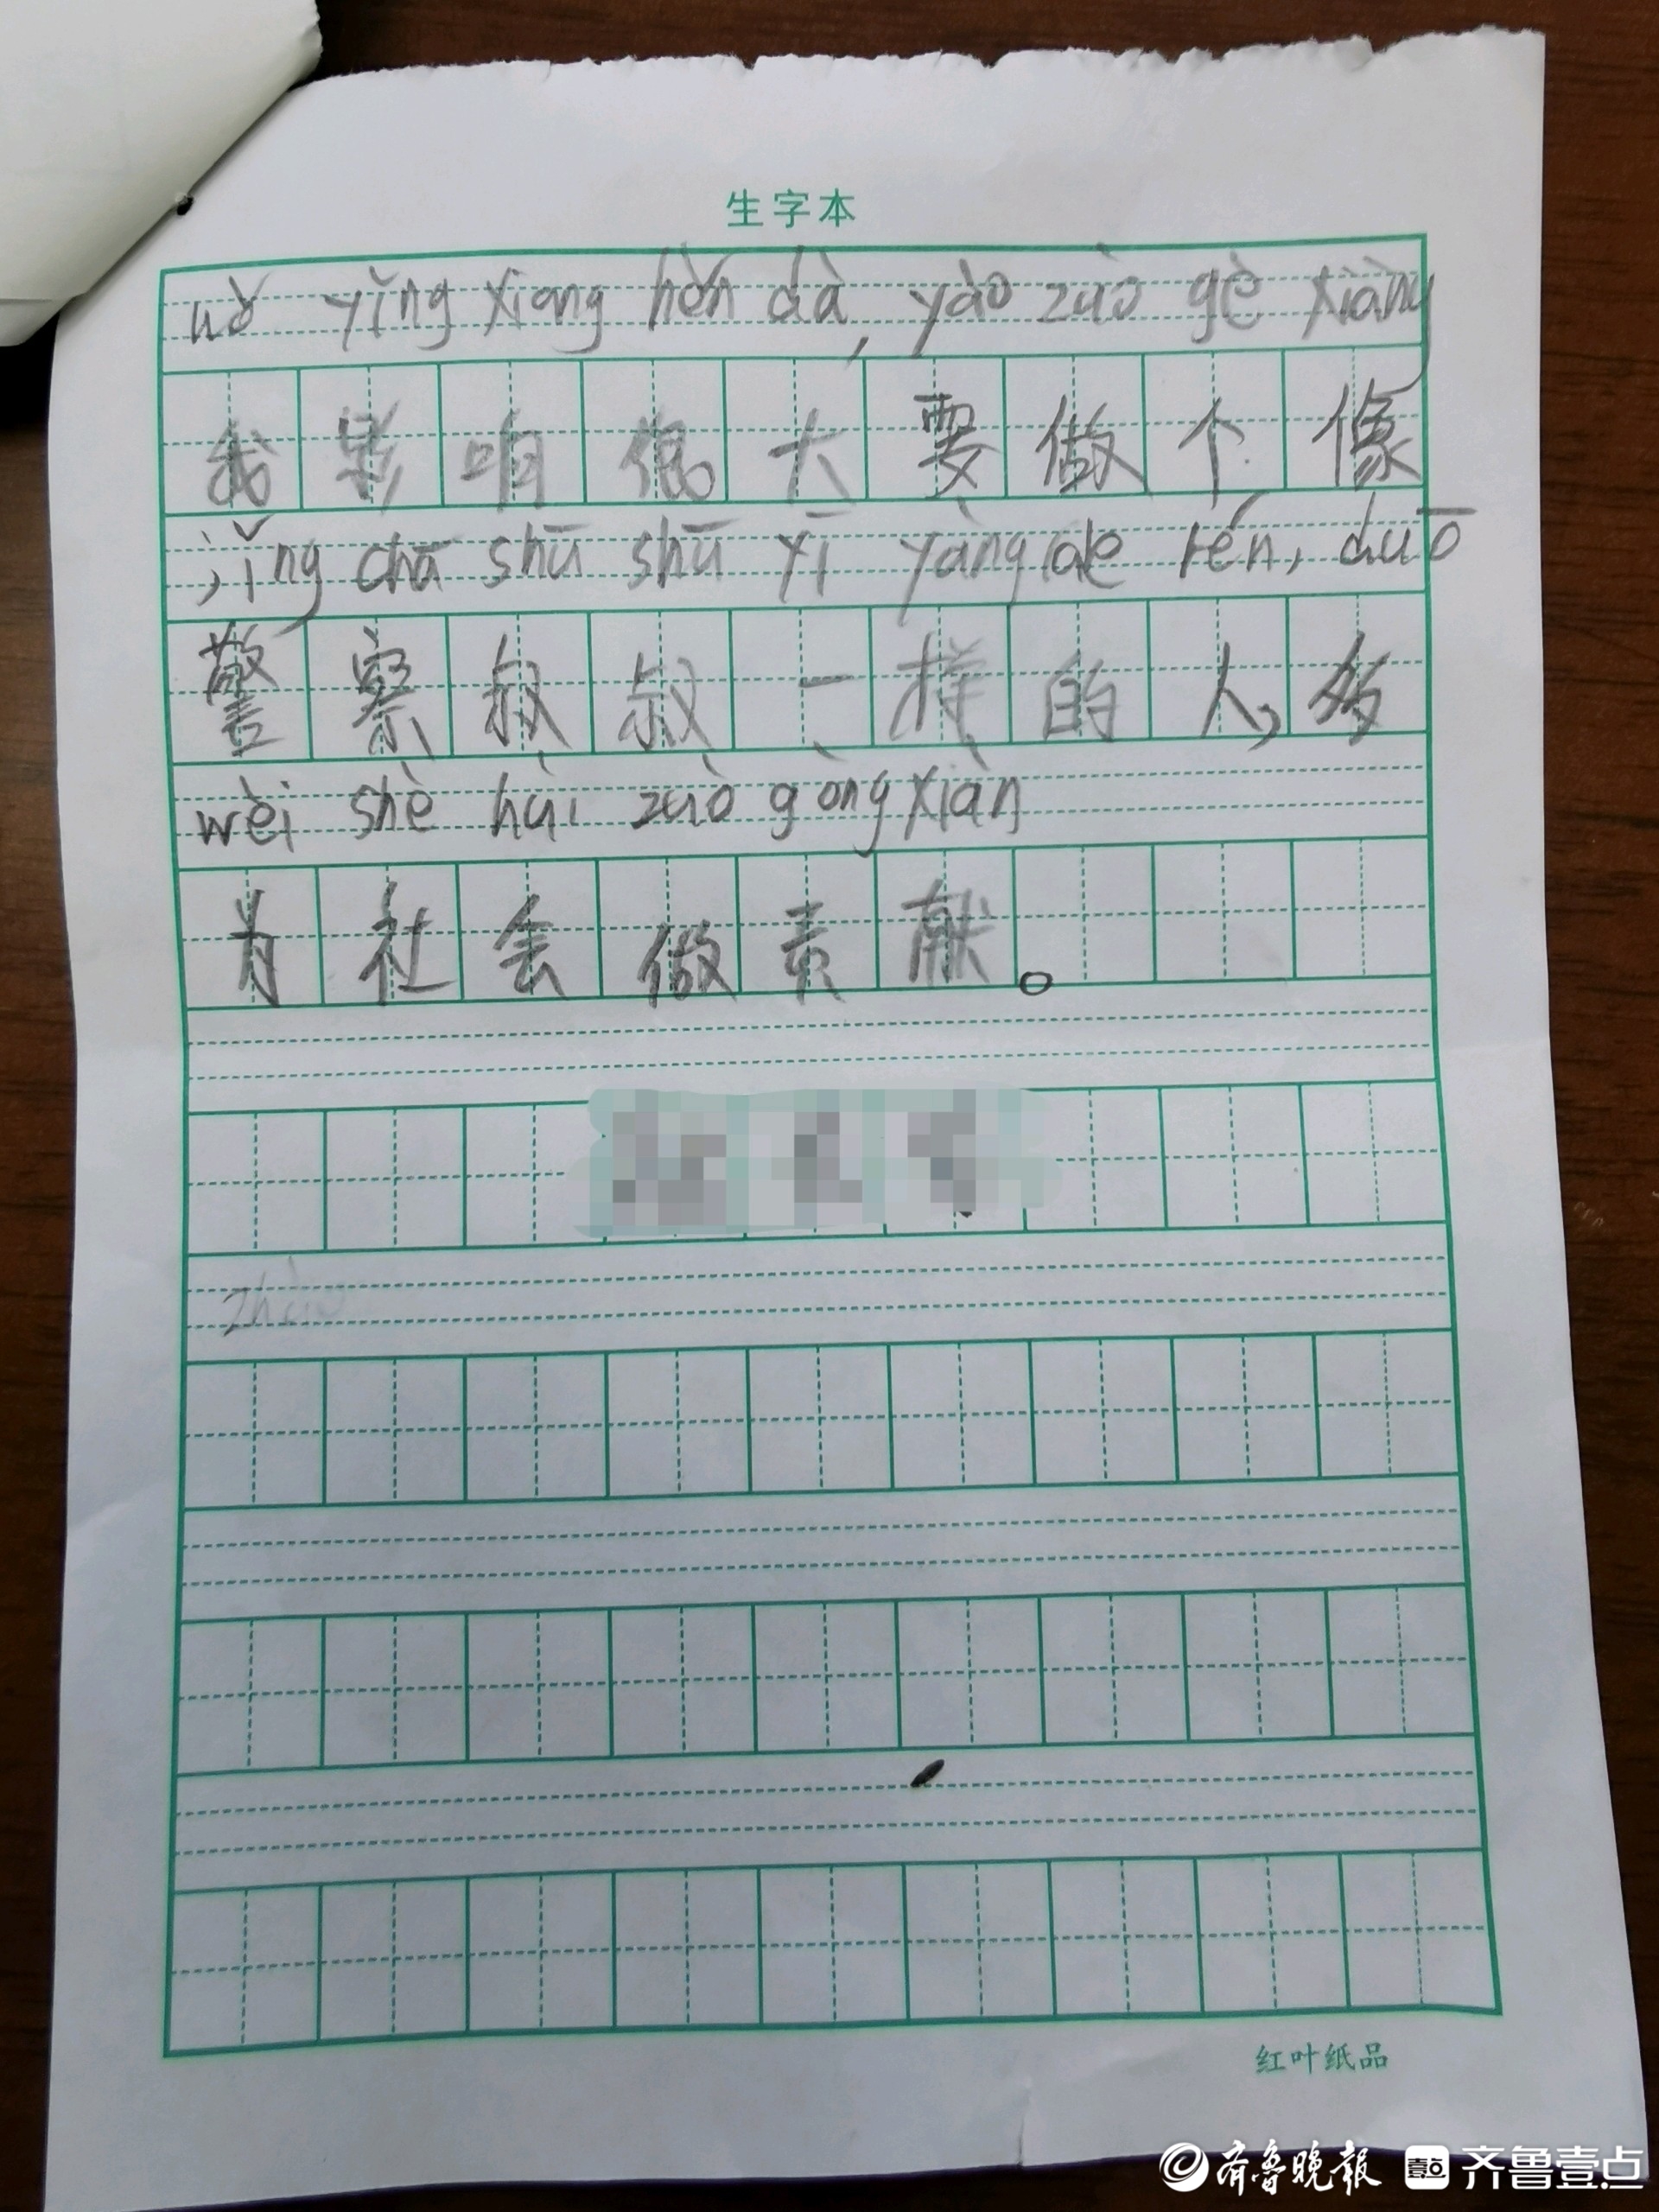 生字本
wǒ yǐng xiǎng hěn dà, yào zuò gè xiàng
我影响很大要做个像
jǐng chā shū shū yī yàng de rén, duō
警察叔叔一样的人,多
wèi shè hùi zuò gòng xiàn
为社会做贡献。
红叶纸品
齐鲁晚报 壹点 齐鲁壹点